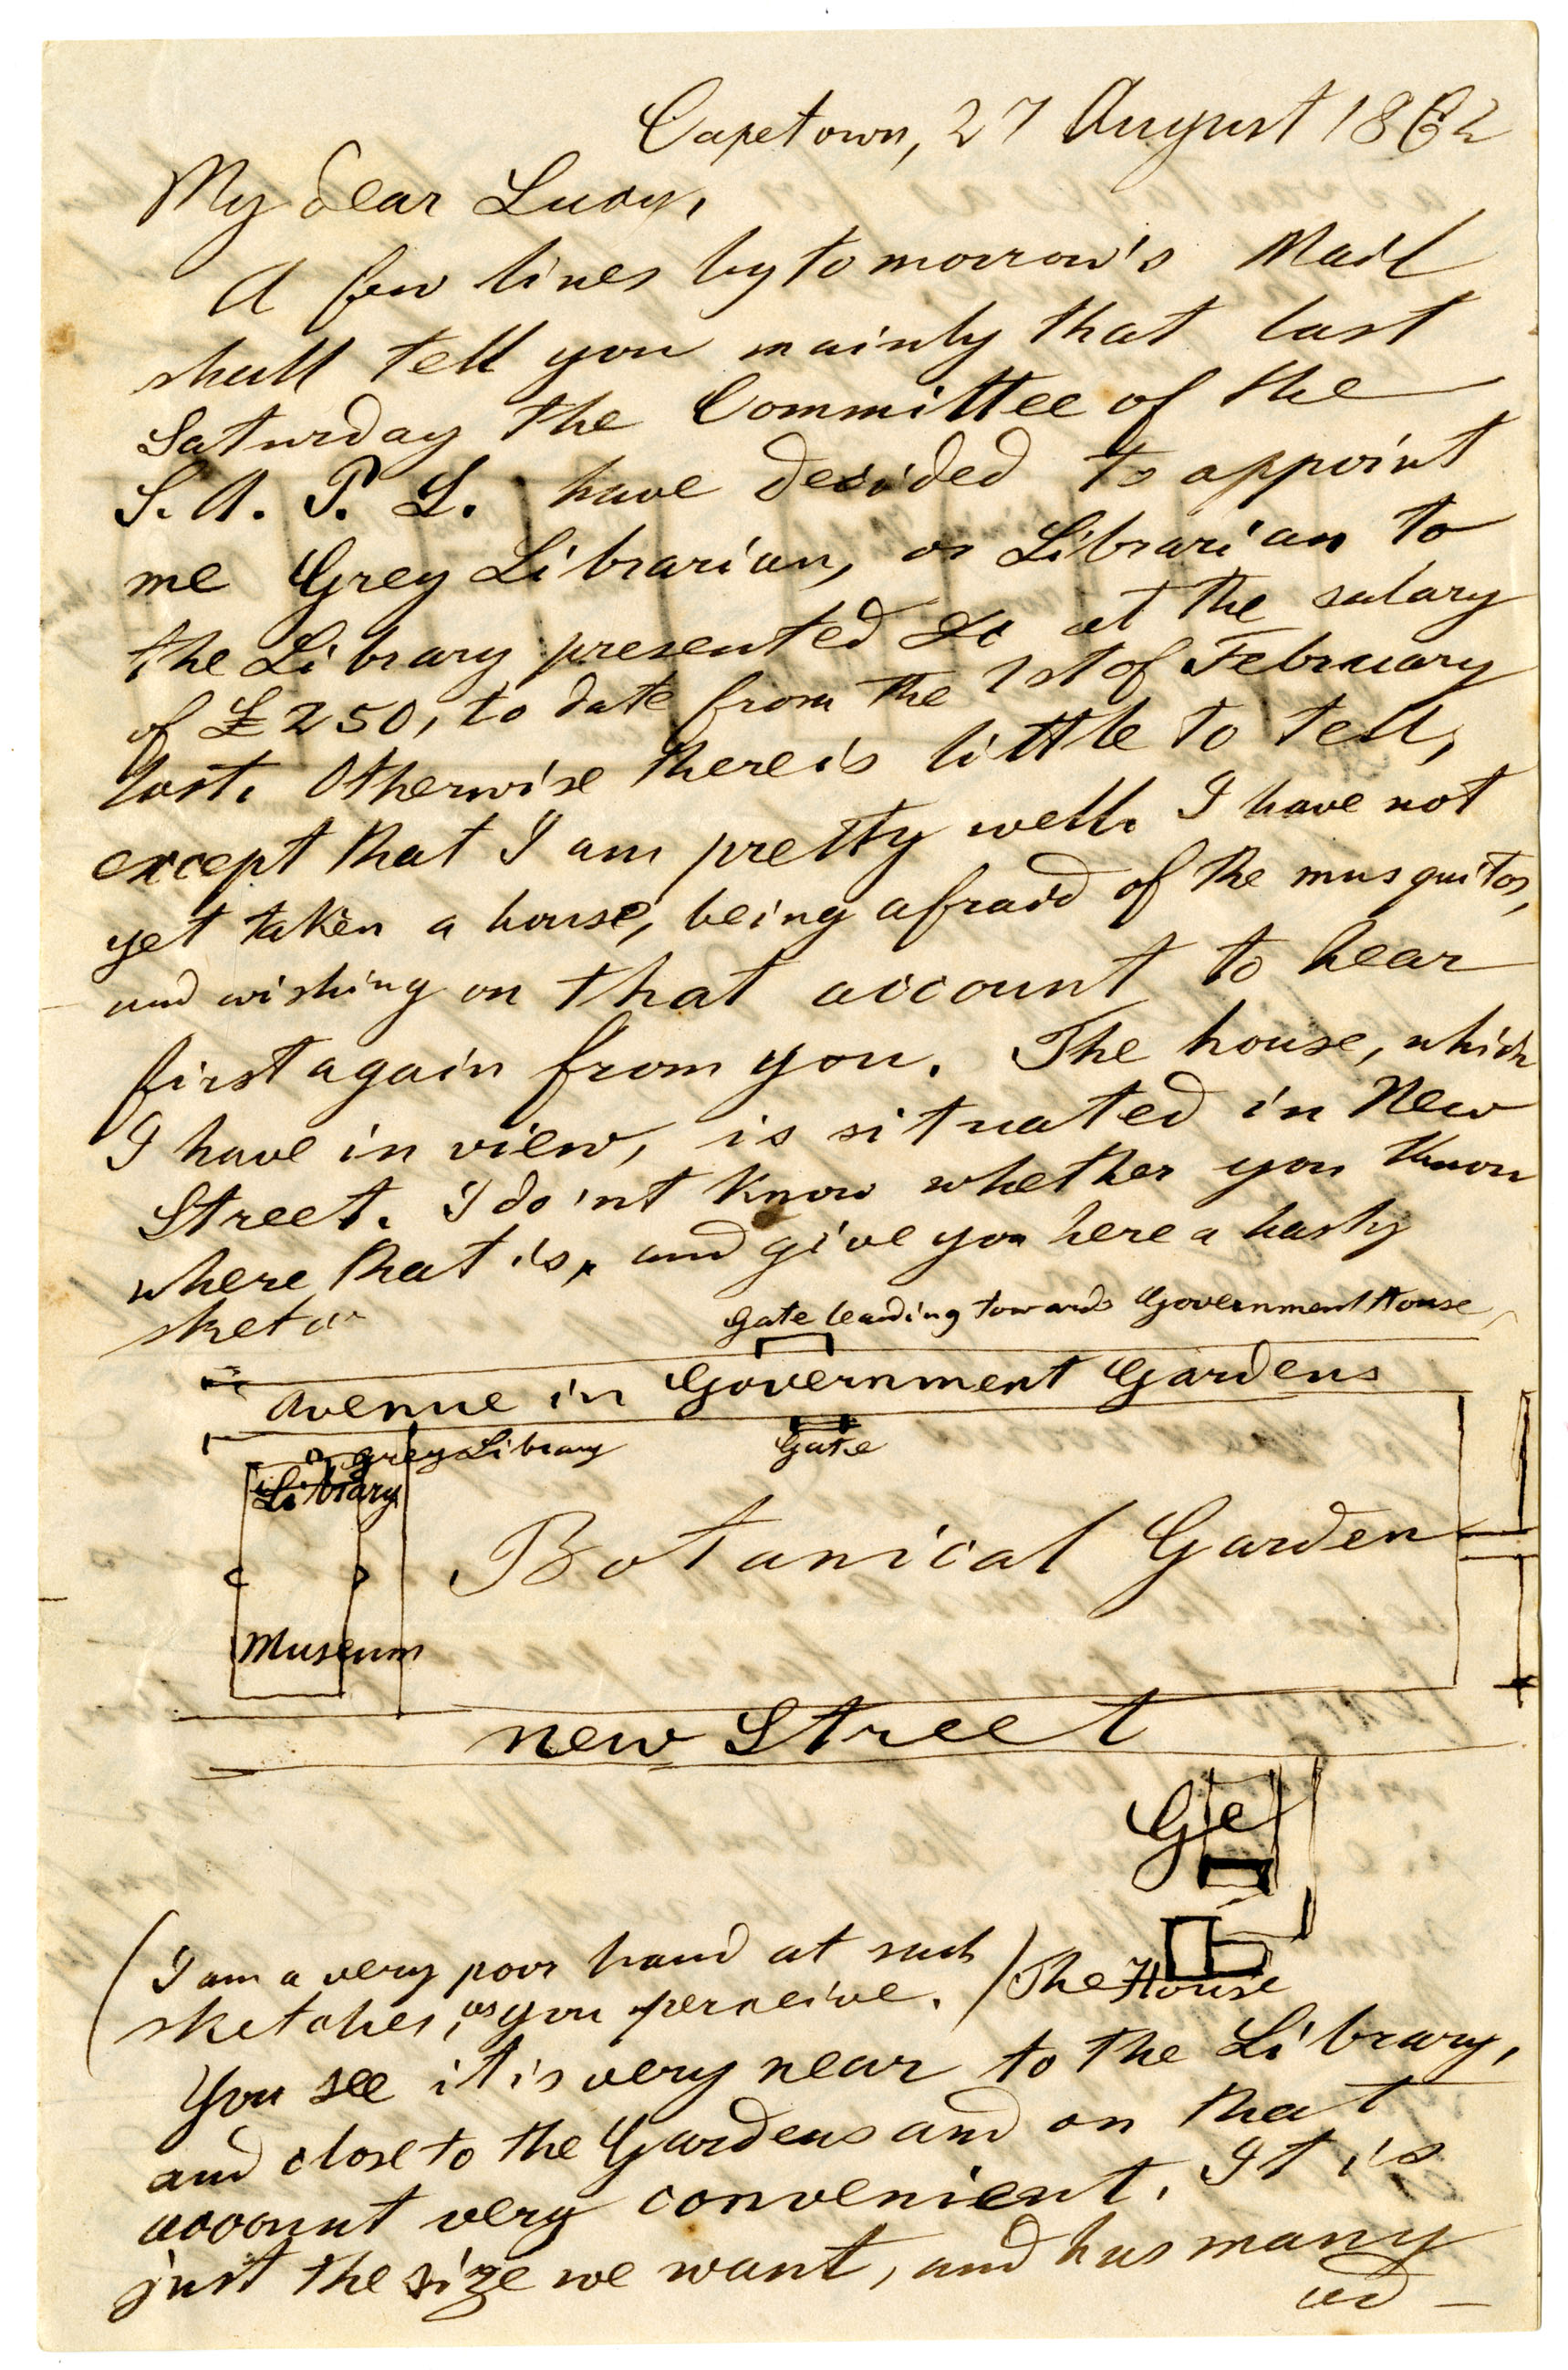 Capetown, 27 August 1862
My dear Lucy,
A few lines by tomorrow's Mail
shall tell you mainly that last
Saturday the Committee of the
S. A. P. L. have decided to appoint
me Grey Librarian, or Librarian to
the Library presented &c at the salary
of £250, to date from the 1st of February
last. Otherwise there is little to tell,
except that I am pretty well. I have not
yet taken a house, being afraid of the musquitos,
and wishing on that account to hear
first again from you. The house, which
I have in view, is situated in New
Street. I do'nt know whether you know
where that is, and give you here a hasty
sketch
Gate leading towards Government House
Avenue in Government Gardens
Grey Library
Gate
Library
Botanical Garden
Museum
New Street
(I am a very poor hand at such
sketches, as you perceive.)
The House
You see it is very near to the Library,
and close to the Gardens and on that
account very convenient. It is
just the size we want, and has many
ad-